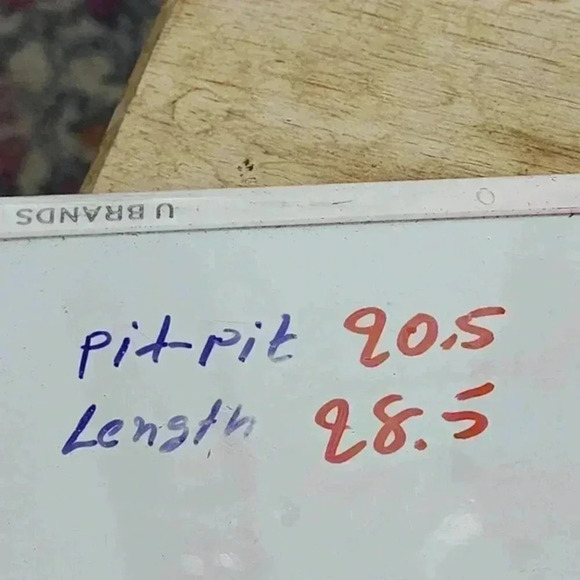 U BRANDS
pit-pit 20.5
Length 28.5